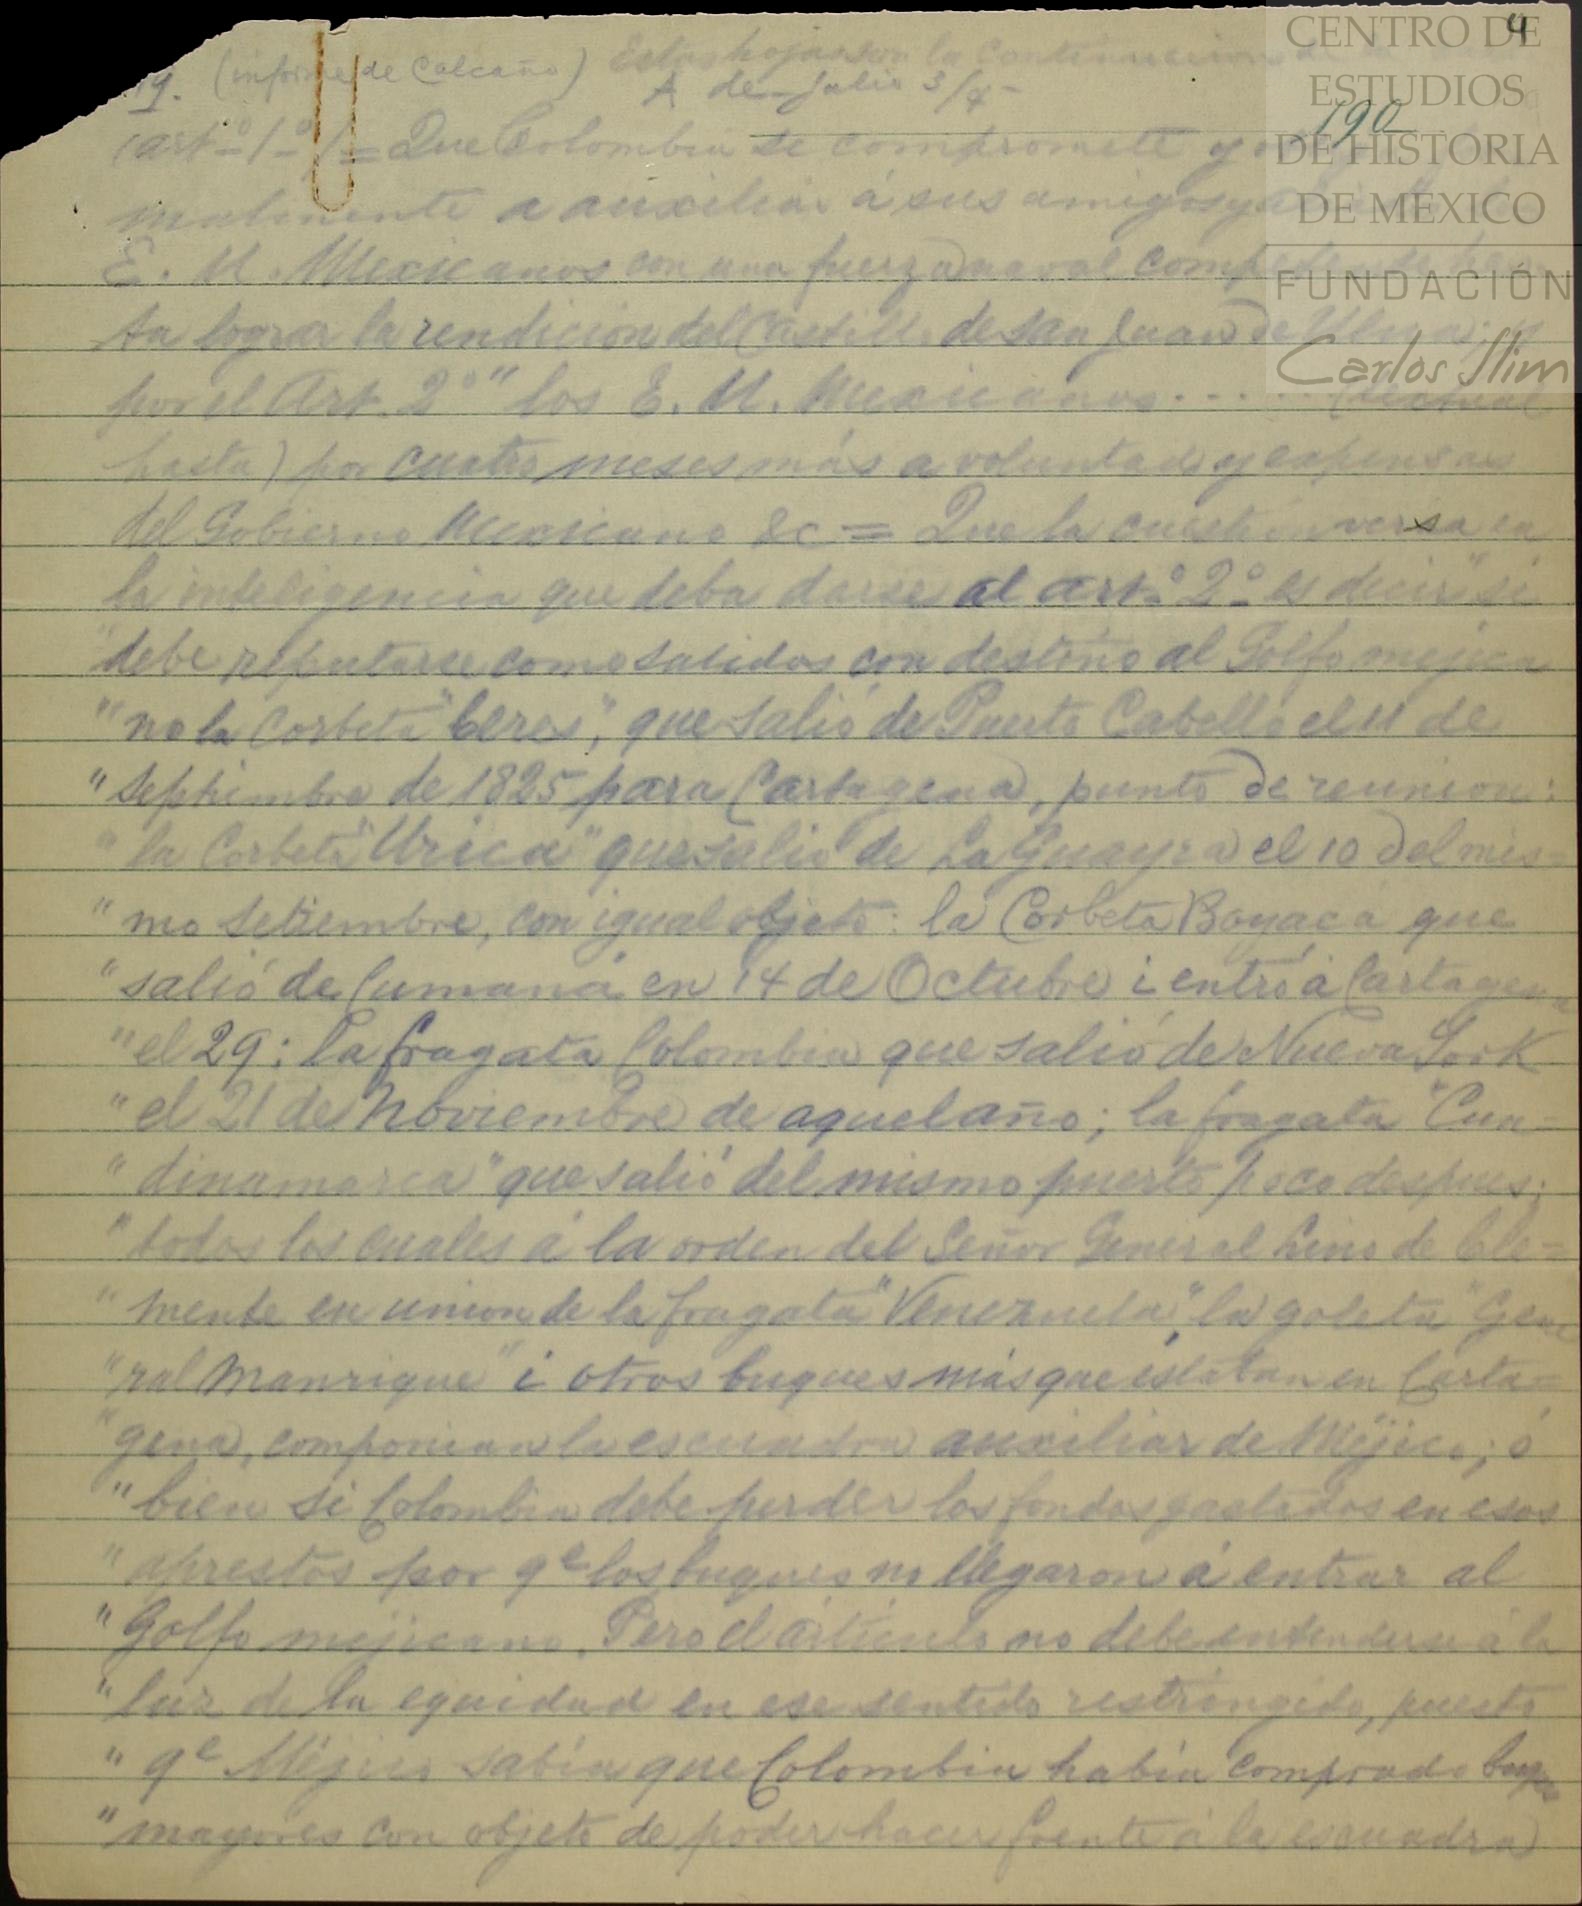 4
CENTRO DE
ESTUDIOS
DE HISTORIA
DE MEXICO
FUNDACIÓN
Carlos Slim
190
19. (informe de Calcaño) Estas hojas son la continuacion
A de Julio 3/4
(artº 1º) = Que Colombia se compromete y
malmente a auxiliar á sus amigos y
E. U. Mexicanos con una fuerza naval
ta lograr la rendicion del Castillo de San Juan de Ulua;
por el Art. 2º " los E. U. Mexicanos . . . . . (textual
hasta) por cuatro meses más a voluntad y expensas
del Gobierno Mexicano &c = Que la cuestion versa en
la inteligencia que deba darse al artº 2º es decir "si
"debe reputarse como salidos con destino al Golfo mejica
"no la Corbeta "Ceres", que salió de Puerto Cabello el 11 de
"Septiembre de 1825 para Cartagena, punto de reunion:
"la Corbeta "Urica" que salió de La Guayra el 10 del mis-
"mo Setiembre, con igual objeto: la Corbeta Boyacá que
"salió de Cumaná en 14 de Octubre i entró á Cartagena
"el 29: la fragata Colombia que salió de Nueva York
"el 21 de Noviembre de aquel año; la fragata "Cun-
"dinamarca" que salió del mismo puerto poco despues;
"todos los cuales á la orden del Señor General Lino de Cle=
"mente en union de la fragata "Venezuela", la goleta "Gene
"ral Manrique" i otros buques más que estaban en Carta=
"gena, componian la escuadra auxiliar de Méjico; ó
"bien si Colombia debe perder los fondos gastados en esos
"aprestos por qe los buques no llegaron á entrar al
"Golfo mejicano. Pero el artículo no debe entenderse á la
"luz de la equidad en ese sentido restringido, puesto
"qe Méjico sabía que Colombia había comprado buques
"mayores con objeto de poder hacer frente á la escuadra